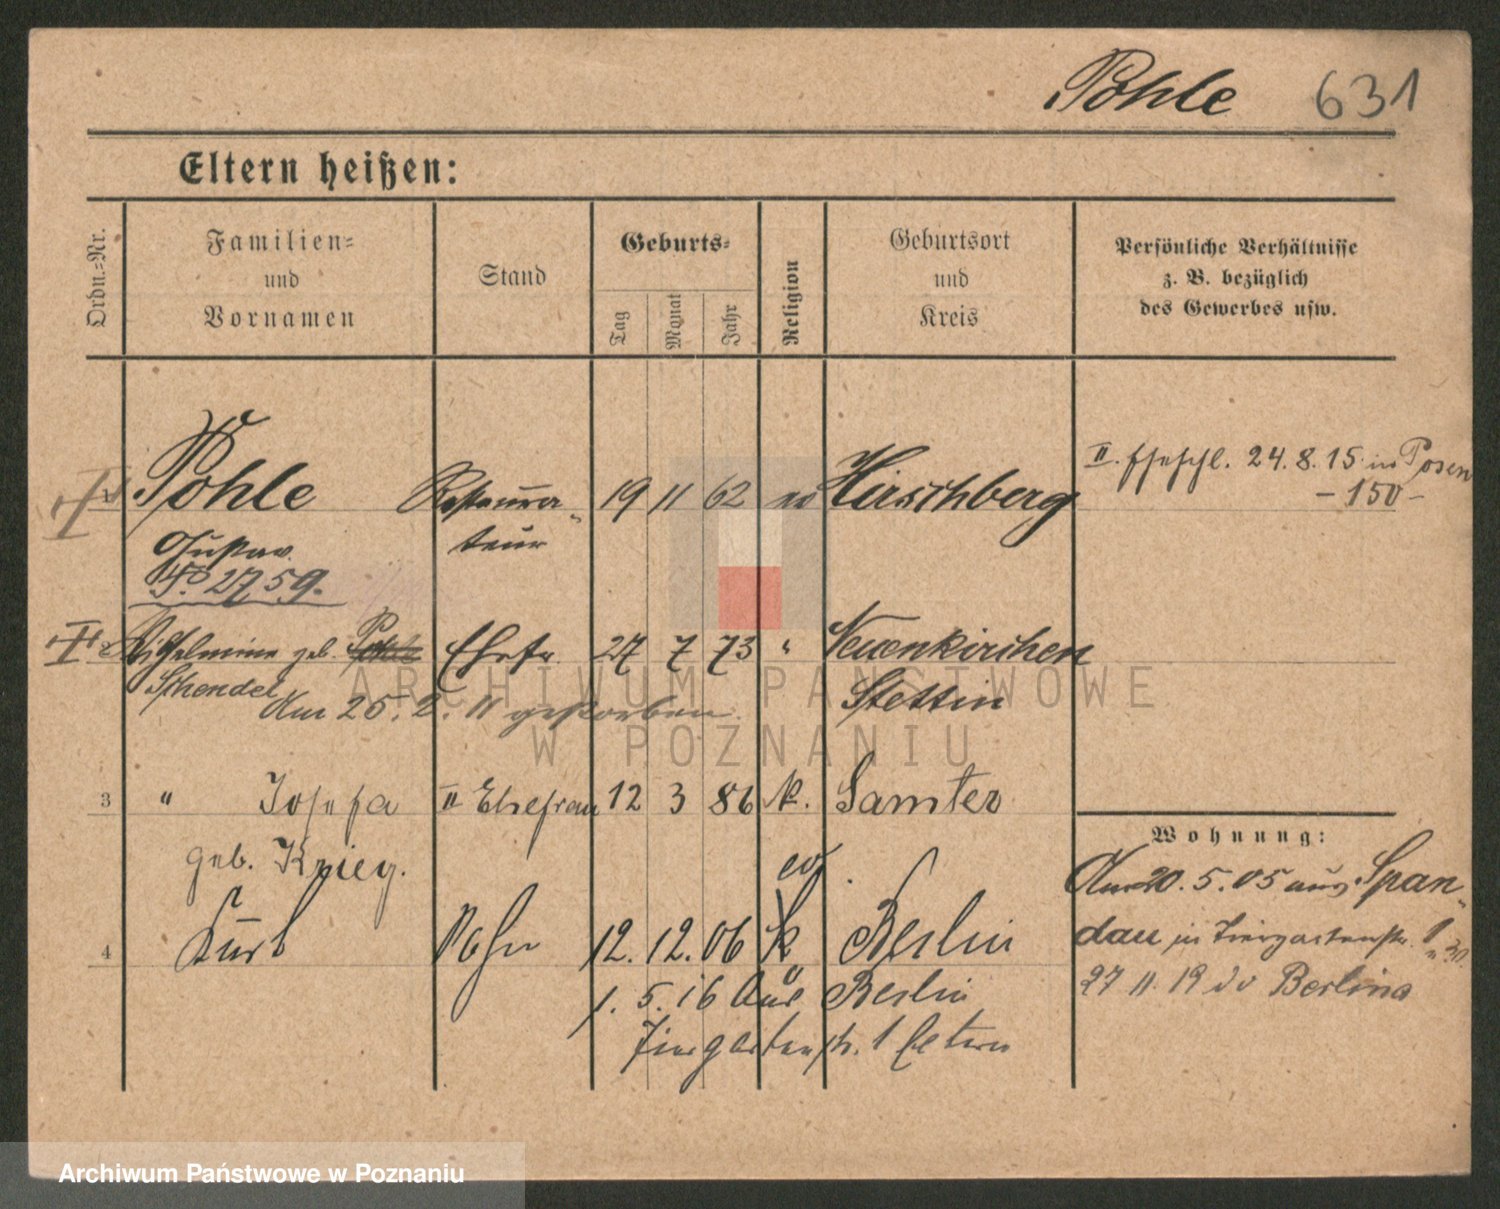 Pohle 631
Eltern heißen:
Ordn.=Nr.
Familien=
und
Vornamen
Stand
Geburts=
Tag
Monat
Jahr
Religion
Geburtsort
und
Kreis
Persönliche Verhältnisse
z. B. bezüglich
des Gewerbes usw.
1 Pohle Restaura- 19 11 62 ev Hirschberg
teur
Gustav.
2759.
II. Eheschl. 24. 8. 15 in Posen
- 150 -
2 Wilhelmine geb. Ehefr. 27 7 73 " Neuenkirchen
Sthendel Stettin
Am 25. 2. 11 gestorben.
3 " Josefa II Ehefrau 12 3 86 k. Samter
geb. Krieg.
ev.
4 Kurt Sohn 12. 12. 06 k Berlin
1. 5. 16 aus Berlin
Tiergartenstr. 1 Eltern
Wohnung:
Am 20. 5. 05 aus Span-
dau in Tiergartenstr. 1
27 11 19 Berlin
ARCHIWUM PAŃSTWOWE
W POZNANIU
Archiwum Państwowe w Poznaniu